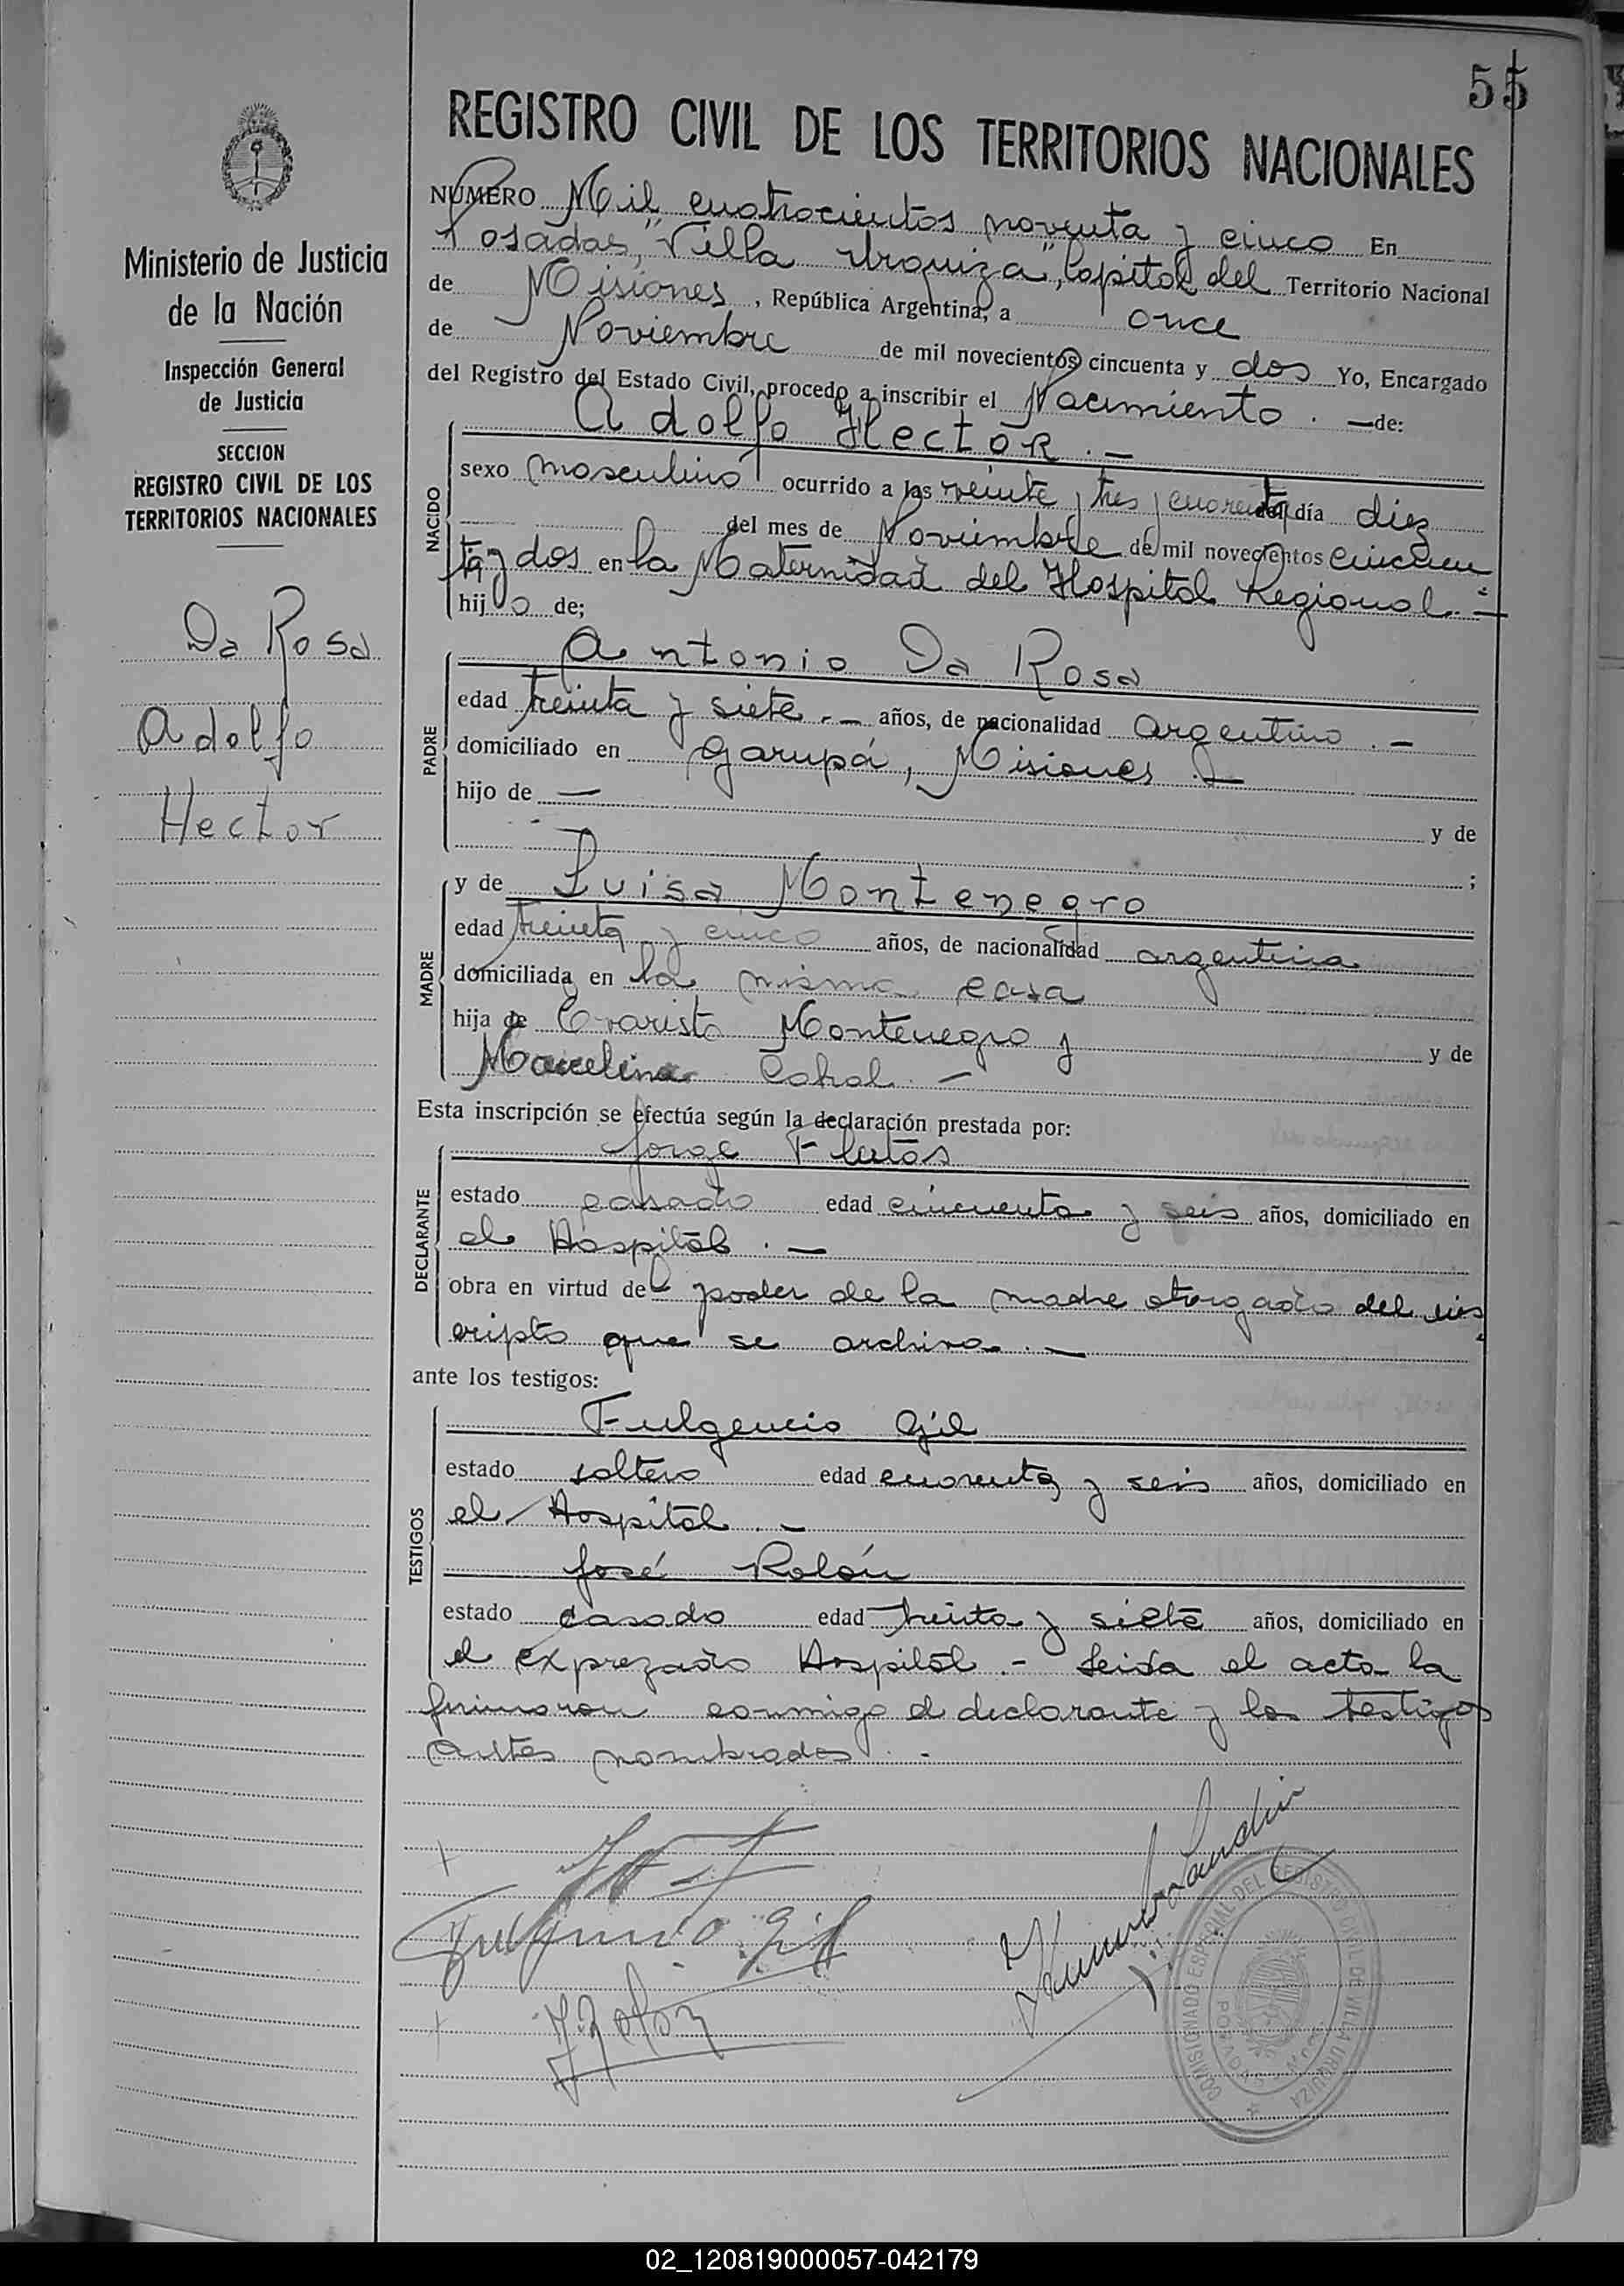 55
REGISTRO CIVIL DE LOS TERRITORIOS NACIONALES
Ministerio de Justicia
de la Nación
Inspección General
de Justicia
SECCION
REGISTRO CIVIL DE LOS
TERRITORIOS NACIONALES
Da Rosa
Adolfo
Hector
NUMERO Mil cuatrocientos noventa y cinco En
Posadas, "Villa Urquiza", Capital del Territorio Nacional
de Misiones, República Argentina, a once
de Noviembre de mil novecientos cincuenta y dos Yo, Encargado
del Registro del Estado Civil, procedo a inscribir el Nacimiento . — de:
NACIDO
Adolfo Hector . —
sexo masculino ocurrido a las veinte y tres y cuarenta del día diez
del mes de Noviembre de mil novecientos cincuen
ta y dos en la Maternidad del Hospital Regional. —
hijo de;
PADRE
Antonio Da Rosa
edad treinta y siete . — años, de nacionalidad argentino . —
domiciliado en Garupá, Misiones . —
hijo de —
y de
;
MADRE
y de Luisa Montenegro
edad treinta y cinco años, de nacionalidad argentina
domiciliada en la misma casa
hija de Evaristo Montenegro y
y de
Marcelina Cabral . —
Esta inscripción se efectúa según la declaración prestada por:
DECLARANTE
Jorge Fleitas
estado casado edad cincuenta y seis años, domiciliado en
el Hospital . —
obra en virtud del poder de la madre otorgado del ins
cripto que se archiva . —
ante los testigos:
TESTIGOS
Fulgencio Gil
estado soltero edad cuarenta y seis años, domiciliado en
el Hospital . —
José Rolón
estado casado edad treinta y siete años, domiciliado en
el exprezado Hospital . - Leida el acta la
firmaron conmigo el declarante y los testigos
antes nombrados . -
Fulgencio Gil
J. Rolon
COMISIONADO ESPECIAL DEL REGISTRO CIVIL DE VILLA URQUIZA
POSADAS
02_120819000057-042179